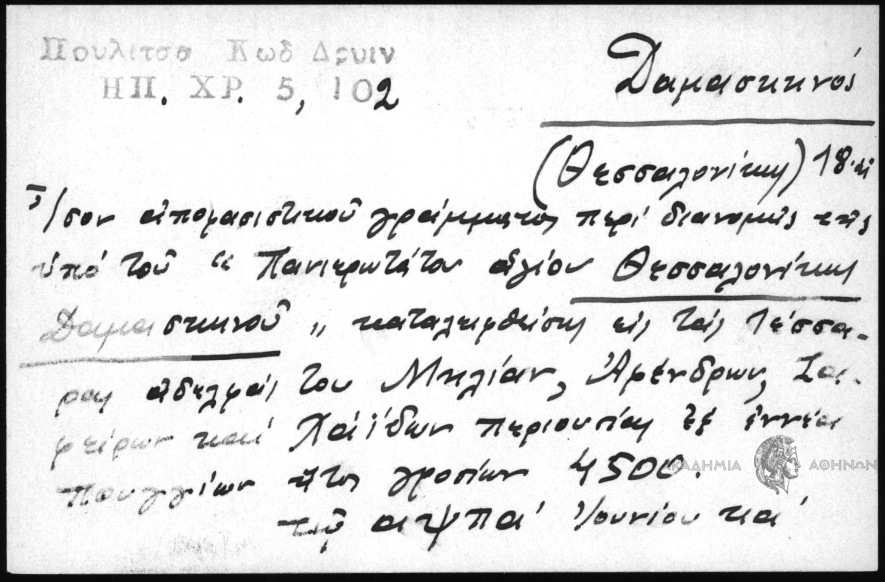 Πουλιτσα Κωδ Δρυιν
ΗΠ. ΧΡ. 5, 102
Δαμασκηνός
(Θεσσαλονίκης) 18
Ἴσον ἀποφασιστικοῦ γράμματος περί διανομῆς τῆς
ὑπό τοῦ " Πανιερωτάτου ἁγίου Θεσσαλονίκης
Δαμασκηνοῦ " καταλειφθείσης εἰς τάς τέσσα-
ρας ἀδελφάς του Μηλιάν,
καί Χαΐδων περιουσίας ἐξ ἐννέα
πουγγίων ἤτοι γροσίων 4500.
τῷ αψπα' Ἰουνίου κα'
ΑΚΑΔΗΜΙΑ ΑΘΗΝΩΝ